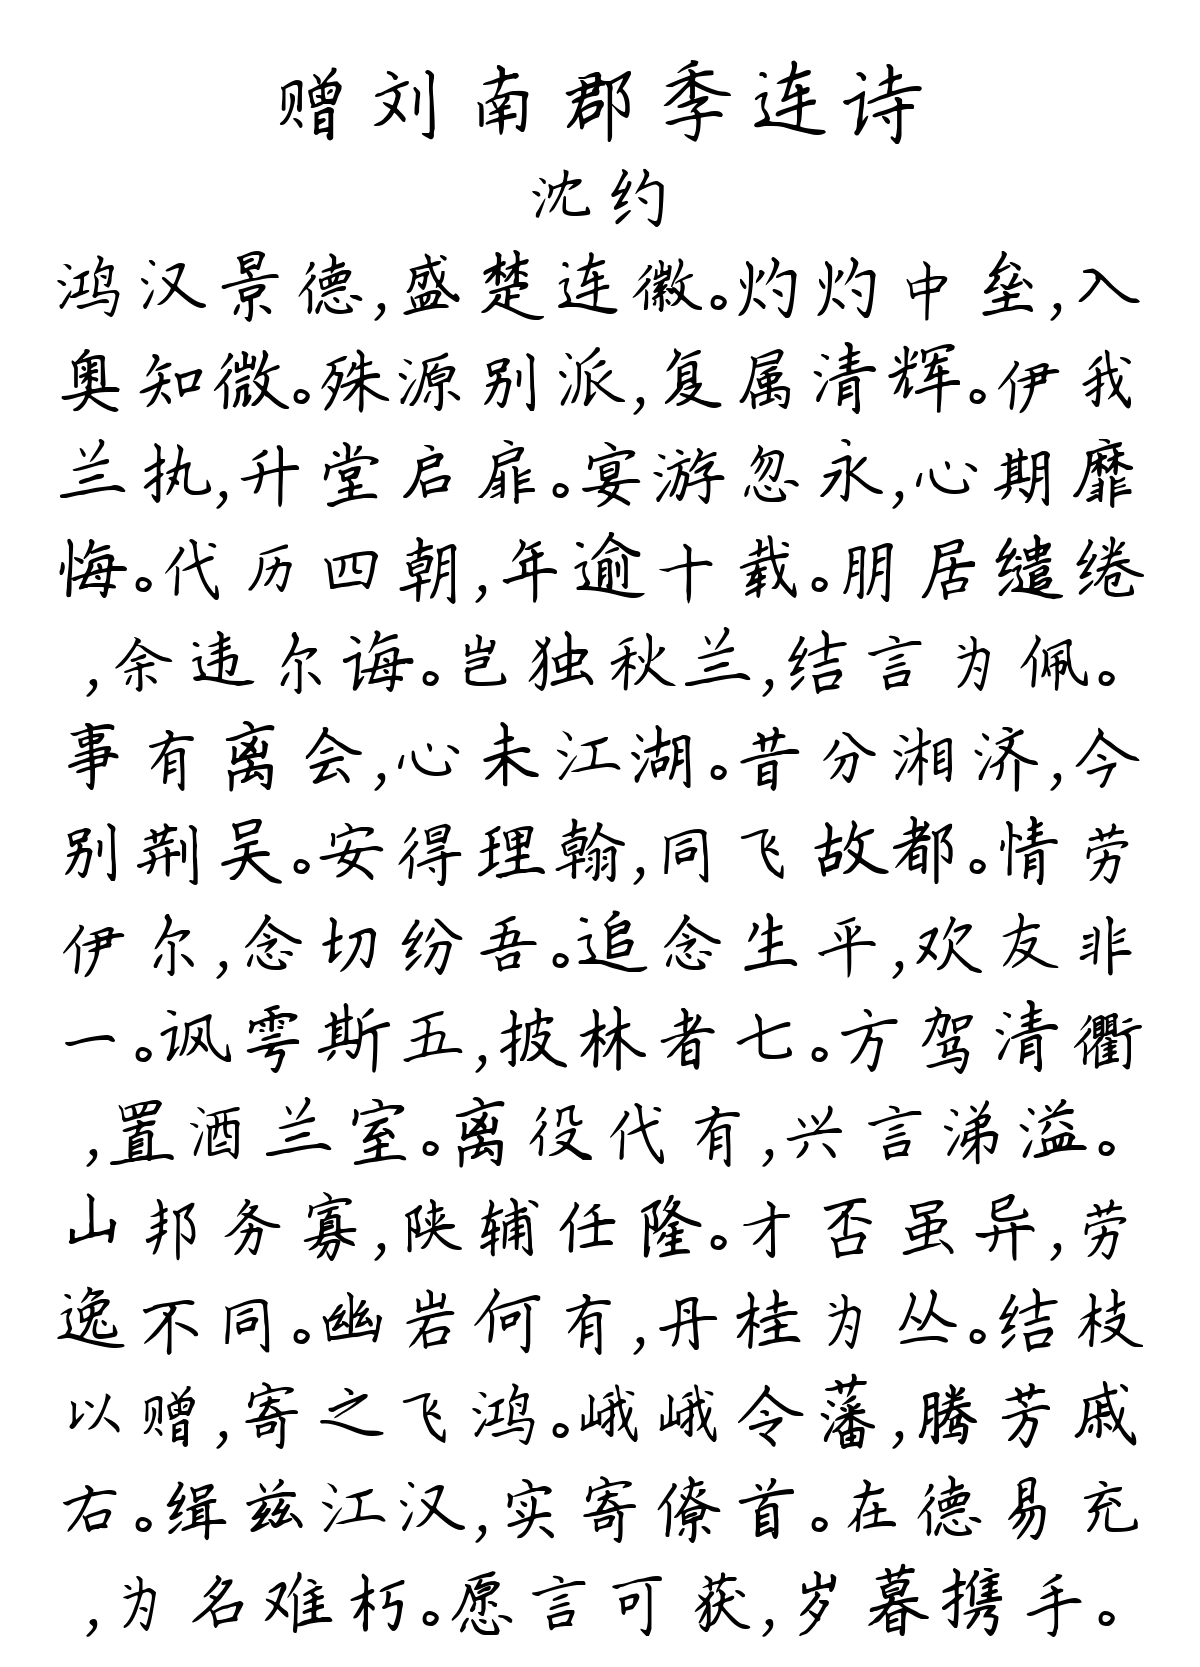 赠刘南郡季连诗
沈约
鸿汉景德,盛楚连徽。灼灼中垒,入
奥知微。殊源别派,复属清辉。伊我
兰执,升堂启扉。宴游忽永,心期靡
悔。代历四朝,年逾十载。朋居缱绻
,余违尔诲。岂独秋兰,结言为佩。
事有离会,心未江湖。昔分湘济,今
别荆吴。安得理翰,同飞故都。情劳
伊尔,念切纷吾。追念生平,欢友非
一。讽雩斯五,披林者七。方驾清衢
,置酒兰室。离役代有,兴言涕溢。
山邦务寡,陕辅任隆。才否虽异,劳
逸不同。幽岩何有,丹桂为丛。结枝
以赠,寄之飞鸿。峨峨令藩,腾芳戚
右。缉兹江汉,实寄僚首。在德易充
,为名难朽。愿言可获,岁暮携手。